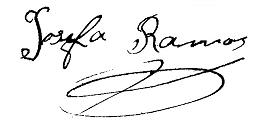 Josefa Ramos